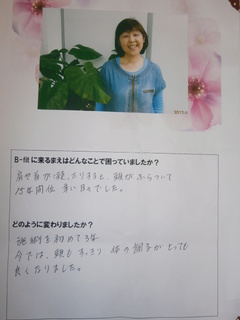 B-fit に来るまえはどんなことで困っていましたか?
肩や首が凝ったりすると、頭がふらついて
15年間位 辛い目のでした。
どのように変わりましたか?
施術を初めて3年
今では、頭もすっきり 体の調子がとっても
良くなりました。